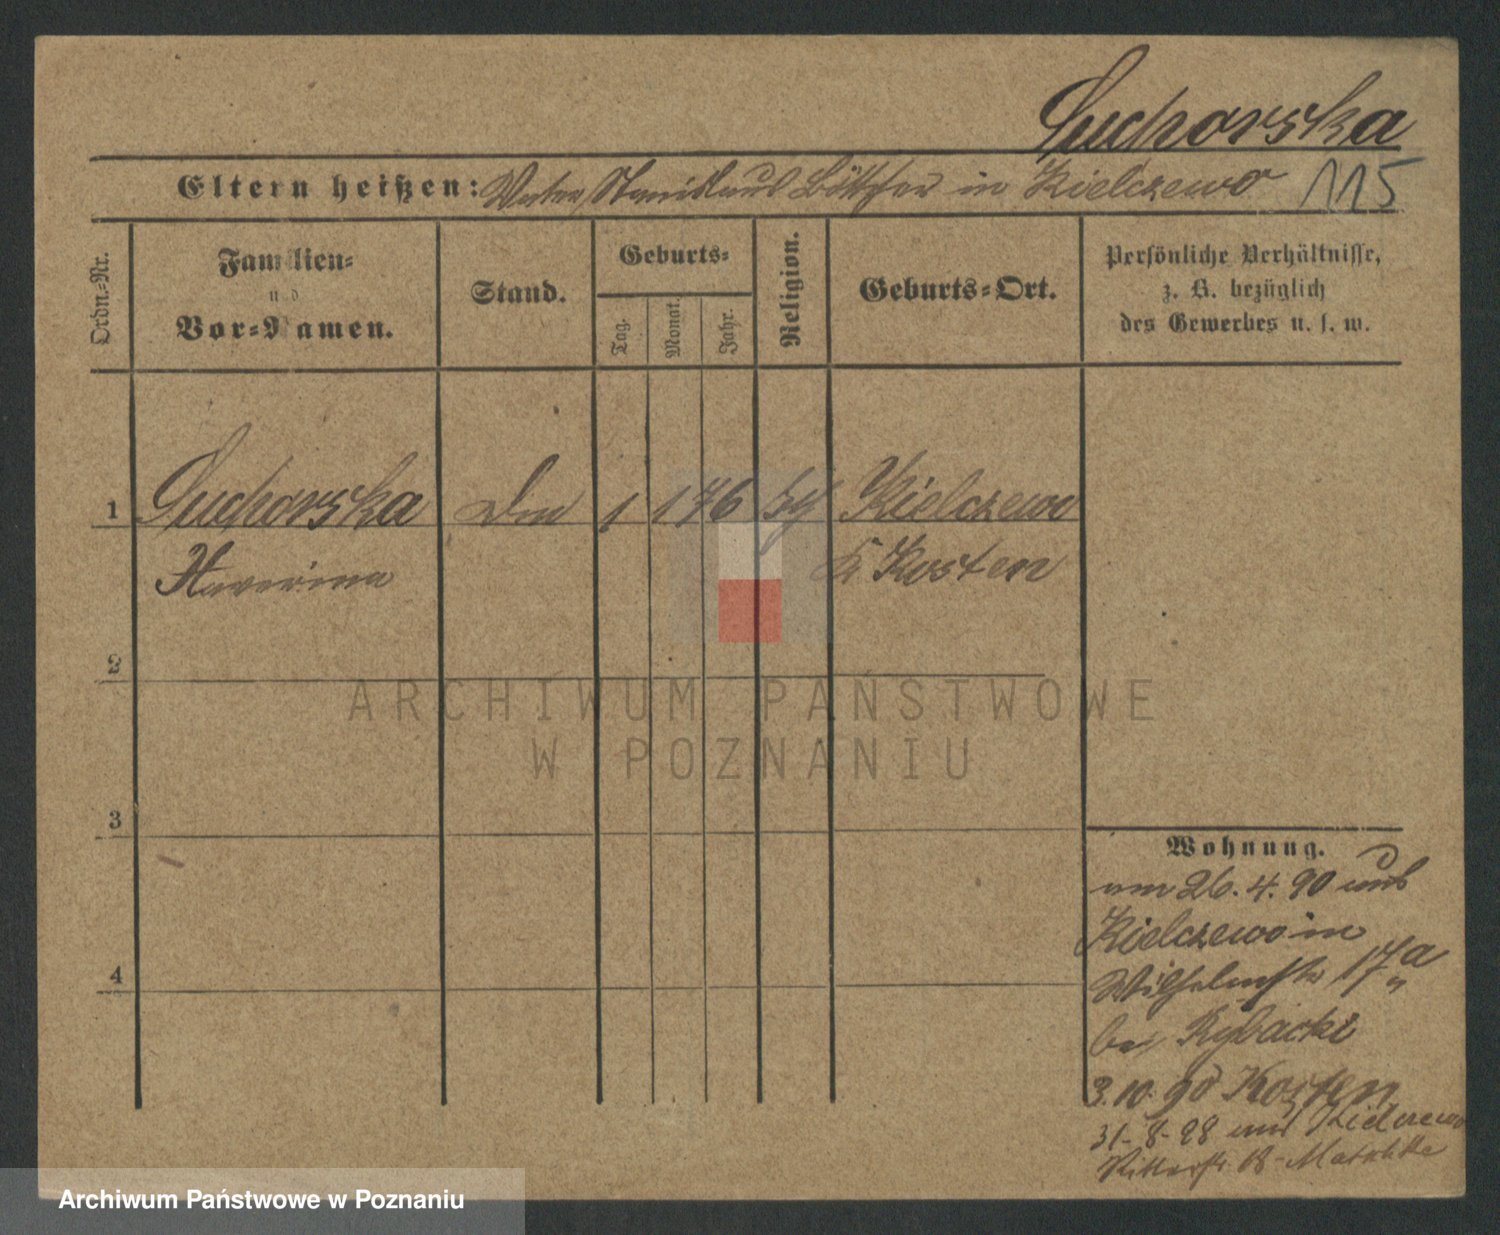 Sucharska
Eltern heißen: Vater Stanislaus Böttcher in Kielczewo 115
Ordn.-Nr.
Familien-
und
Vor-Namen.
Stand.
Geburts-
Tag.
Monat.
Jahr.
Religion.
Geburts-Ort.
Persönliche Verhältnisse,
z. B. bezüglich
des Gewerbes u. s. w.
1 Sucharska 1 1 76 Kielczewo
Kosten
2
3
4
Wohnung.
am 26. 4. 90 aus
Kielczewo in
Wilhelmstr 17a
bei Rybacki
3. 10. 90 Kosten
31-8-98 aus Kielczewo
Ritterstr. 18
ARCHIWUM PAŃSTWOWE
W POZNANIU
Archiwum Państwowe w Poznaniu